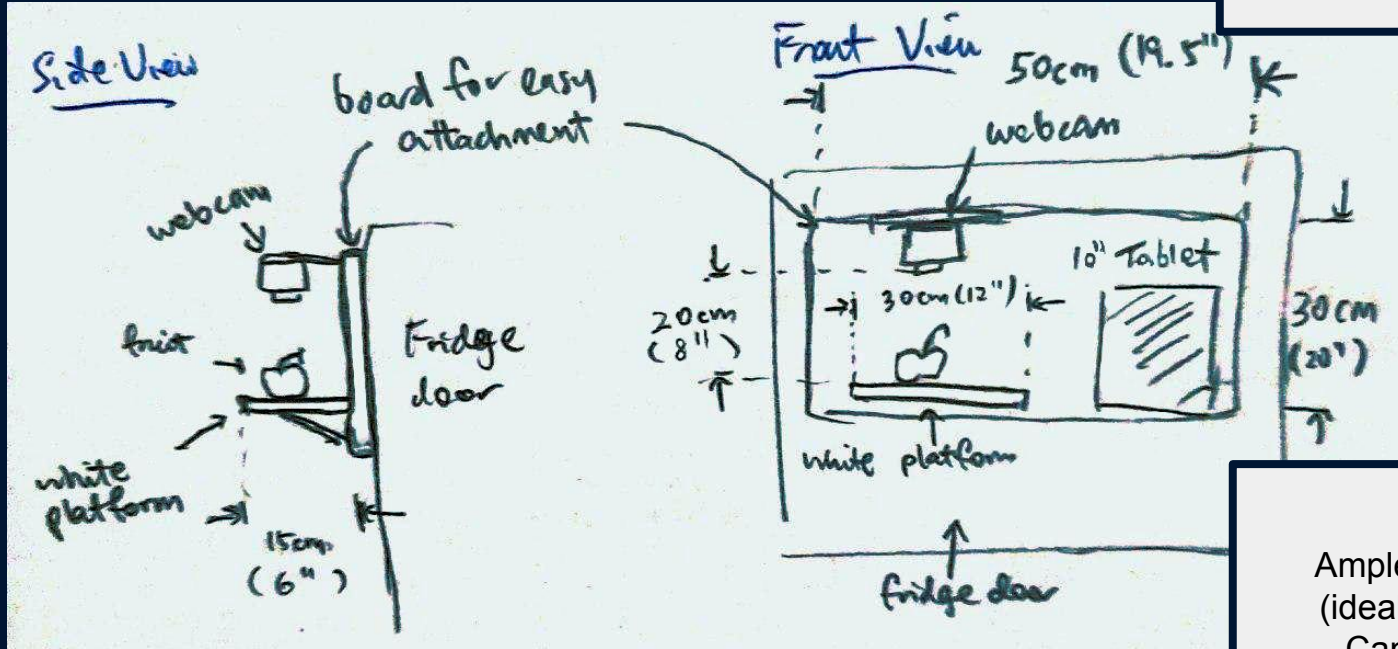 Side View
board for easy
attachment
webcam
fruit
Fridge
door
white
platform
15cm
(6")
Front View
50cm (19.5")
webcam
10" Tablet
20cm
(8")
30cm (12")
30cm
(20")
white platform
fridge door
Ample
(idea
Car